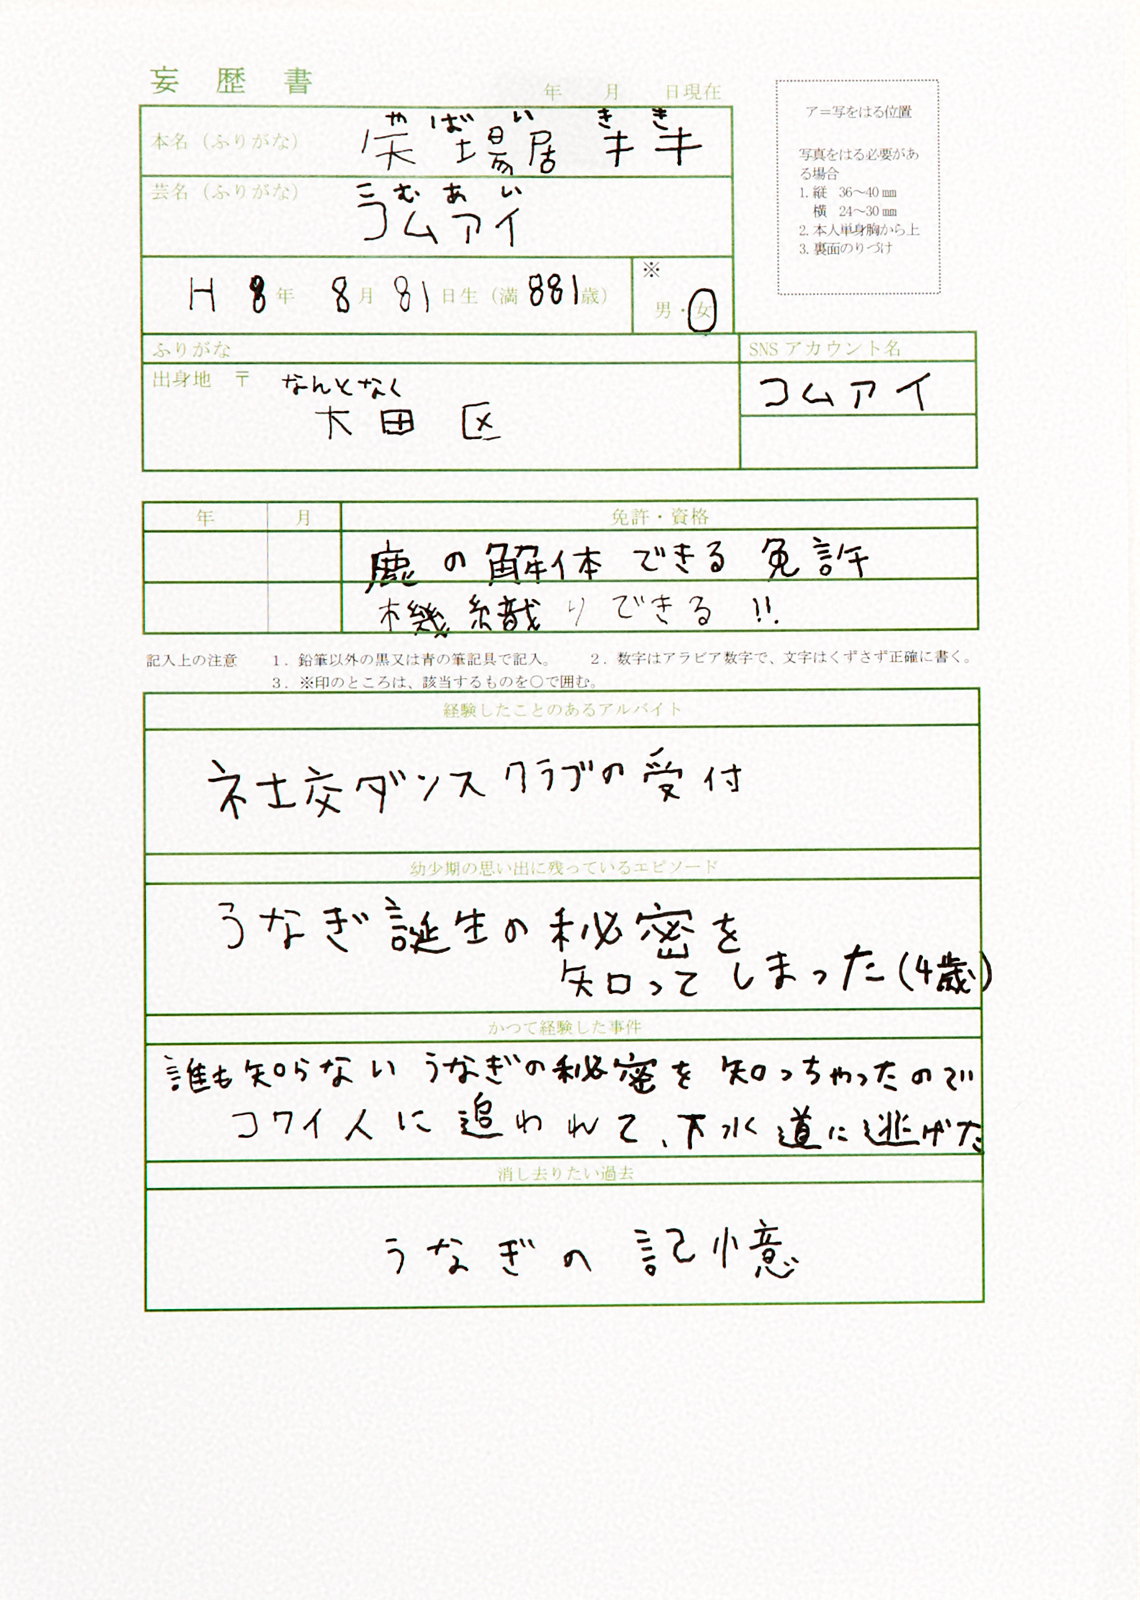 妄歴書
年 月 日現在
ア=写をはる位置
写真をはる必要があ
る場合
1. 縦 36〜40㎜
横 24〜30㎜
2. 本人単身胸から上
3. 裏面のりづけ
やばい きき
本名（ふりがな） 矢場居 キキ
こむあい
芸名（ふりがな） コムアイ
H 8年 8月 81日生（満 881歳）
※
男・女
ふりがな
SNS アカウント名
出身地 〒 なんとなく
大田区
コムアイ
年 月 免許・資格
鹿の解体できる免許
機織りできる!!
記入上の注意 1．鉛筆以外の黒又は青の筆記具で記入。 2．数字はアラビア数字で、文字はくずさず正確に書く。
3．※印のところは、該当するものを○で囲む。
経験したことのあるアルバイト
社交ダンスクラブの受付
幼少期の思い出に残っているエピソード
うなぎ誕生の秘密を
知ってしまった(4歳)
かつて経験した事件
誰も知らないうなぎの秘密を知っちゃったので
コワイ人に追われて、下水道に逃げた
消し去りたい過去
うなぎの記憶